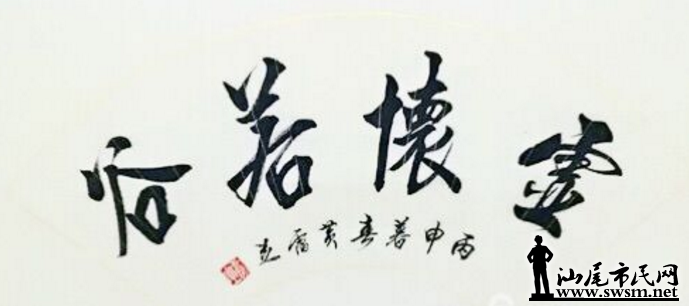 虚怀若谷
丙申暮春黄
汕尾市民网
www.swsm.net